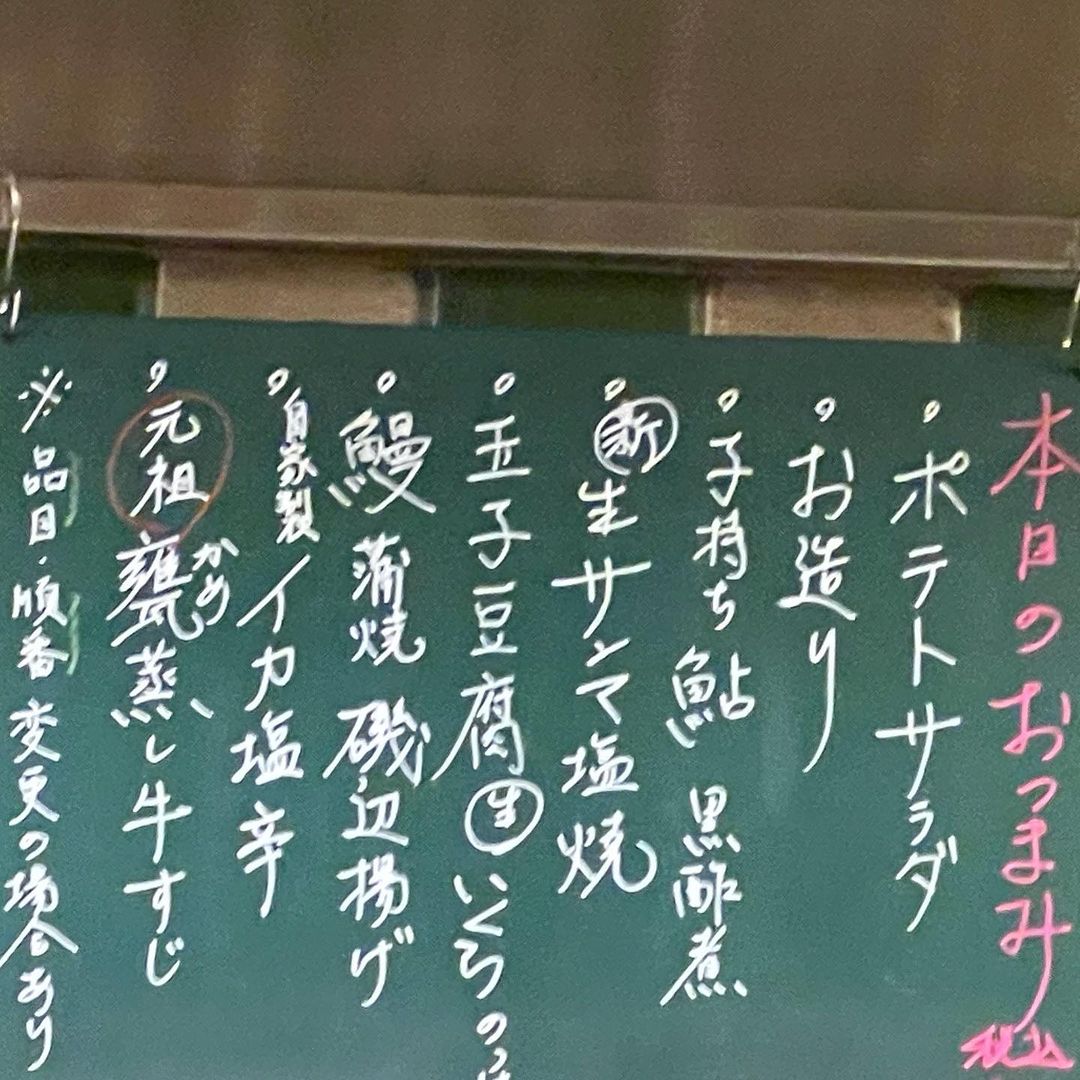 本日のおつまみ
税込
・ポテトサラダ
・お造り
・子持ち鮎 黒酢煮
・新 生サンマ塩焼
・玉子豆腐 生いくらのっけ
・鰻蒲焼 磯辺揚げ
・自家製イカ塩辛
・元祖 甕蒸し牛すじ
かめ
※品目・順番変更の場合あり